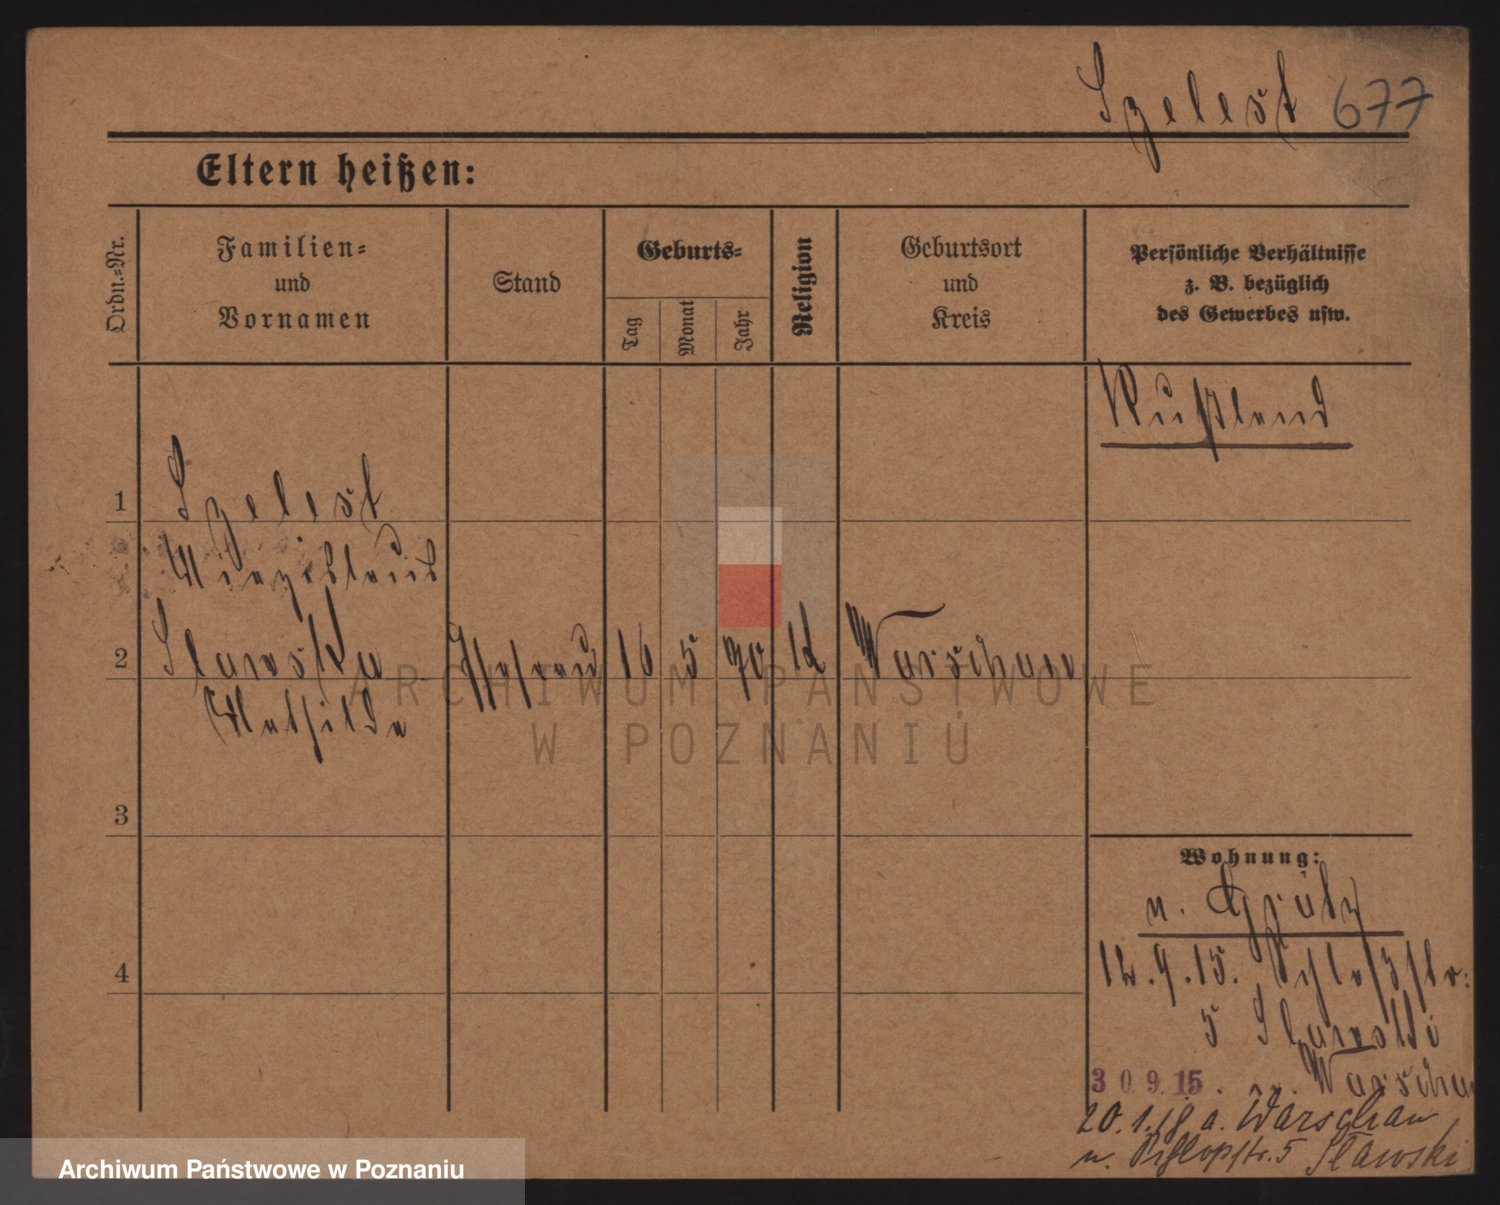 Szelest 677
Eltern heißen:
Ordn.-Nr.
Familien-
und
Vornamen
Stand
Geburts-
Tag
Monat
Jahr
Religion
Geburtsort
und
Kreis
Persönliche Verhältnisse
z. B. bezüglich
des Gewerbes usw.
Rußland
1
Szelest
Miezislaus
2
Slawska
Mathilde
Ehefrau 16 5 70 kt Warschau
3
4
Wohnung:
n. Grätz
12.9.15. Schloßstr.
5 Slawski
30.9.15. n. Warschau
20.1.18 a. Warschau
n. Schloßstr. 5 Sławski
ARCHIWUM PAŃSTWOWE
W POZNANIU
Archiwum Państwowe w Poznaniu